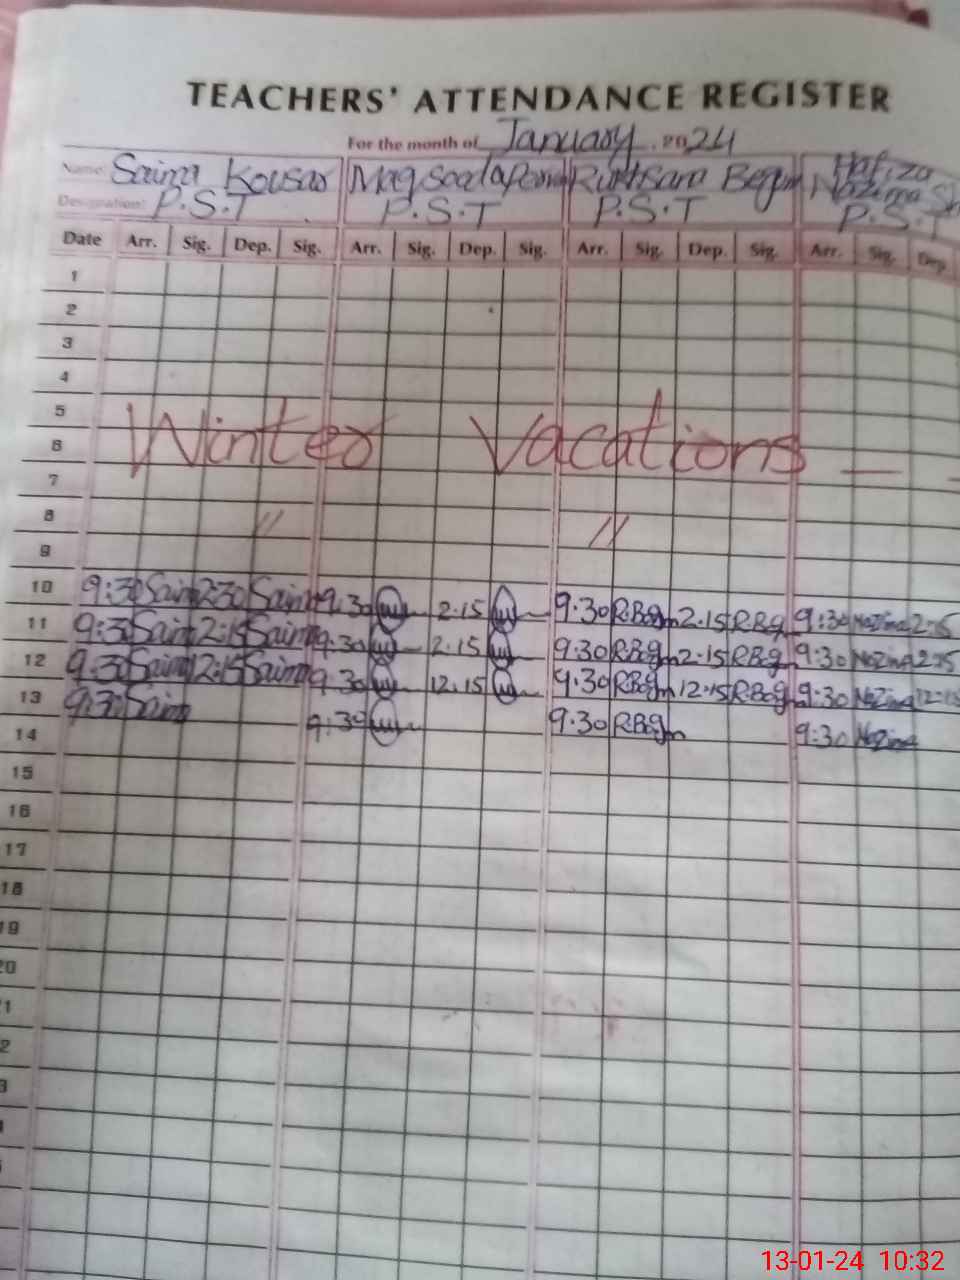 TEACHERS' ATTENDANCE REGISTER
For the month of January 2024
Name: Saima Kousar Hafiza
Begum Nazima
Designation: P.S.T P.S.T P.S.T P.S.T
Date Arr. Sig. Dep. Sig. Arr. Sig. Dep. Sig. Arr. Sig. Dep. Sig. Arr. Sig. Dep.
1
2
3
4
5
Winter Vacations
6
7
8 " "
9
10 9:30 Saima 2:30 Saima 9:30 2.15 9.30 R.Begm 2.15 R.Bg 9:30 Nazima 2:15
11 9:30 Saima 2:15 Saima 9:30 2.15 9.30 R.Begm 2.15 R.Bg 9:30 Nazima 2:15
12 9:30 Saima 12:15 Saima 9:30 12.15 9.30 R.Begm 12.15 R.Beg 9:30 Nazima 12:15
13 9:3 Saima 9:30 9.30 R.Begm 9:30 Nazima
14
15
16
17
18
19
20
13-01-24 10:32